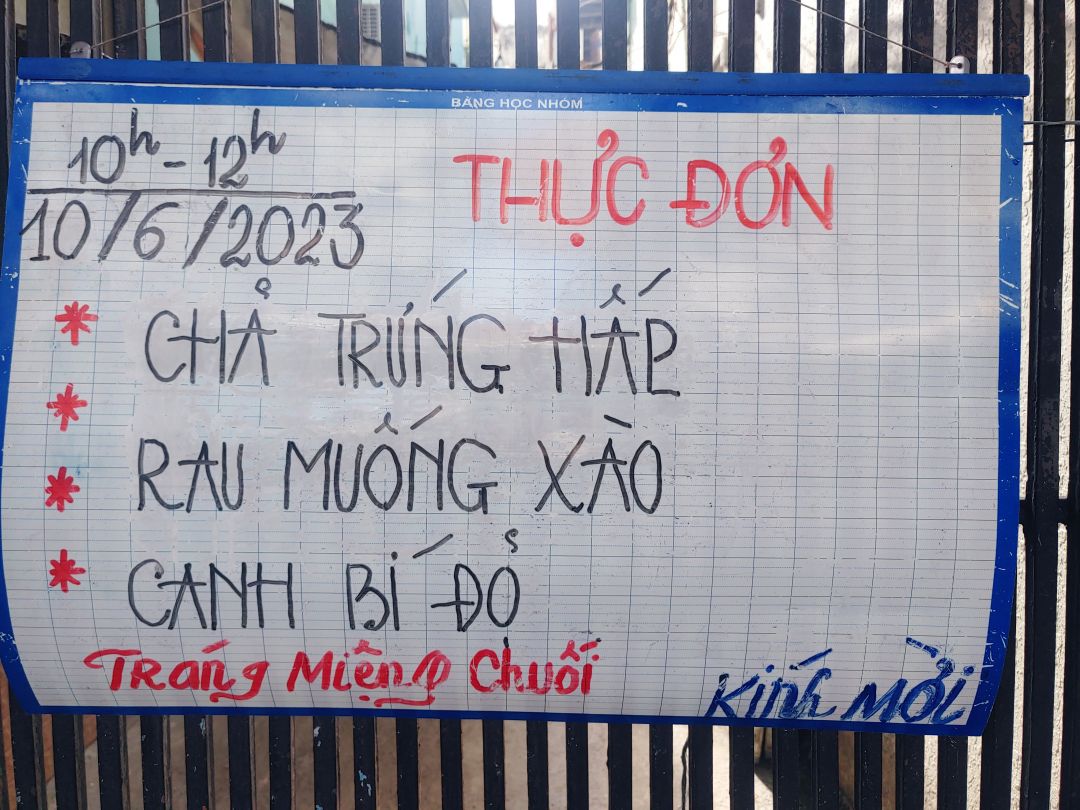 BẢNG HỌC NHÓM
10h - 12h
10/6/2023
THỰC ĐƠN
* CHẢ TRỨNG HẤP
*
* RAU MUỐNG XÀO
* CANH BÍ ĐỎ
Tráng Miệng Chuối
Kính Mời